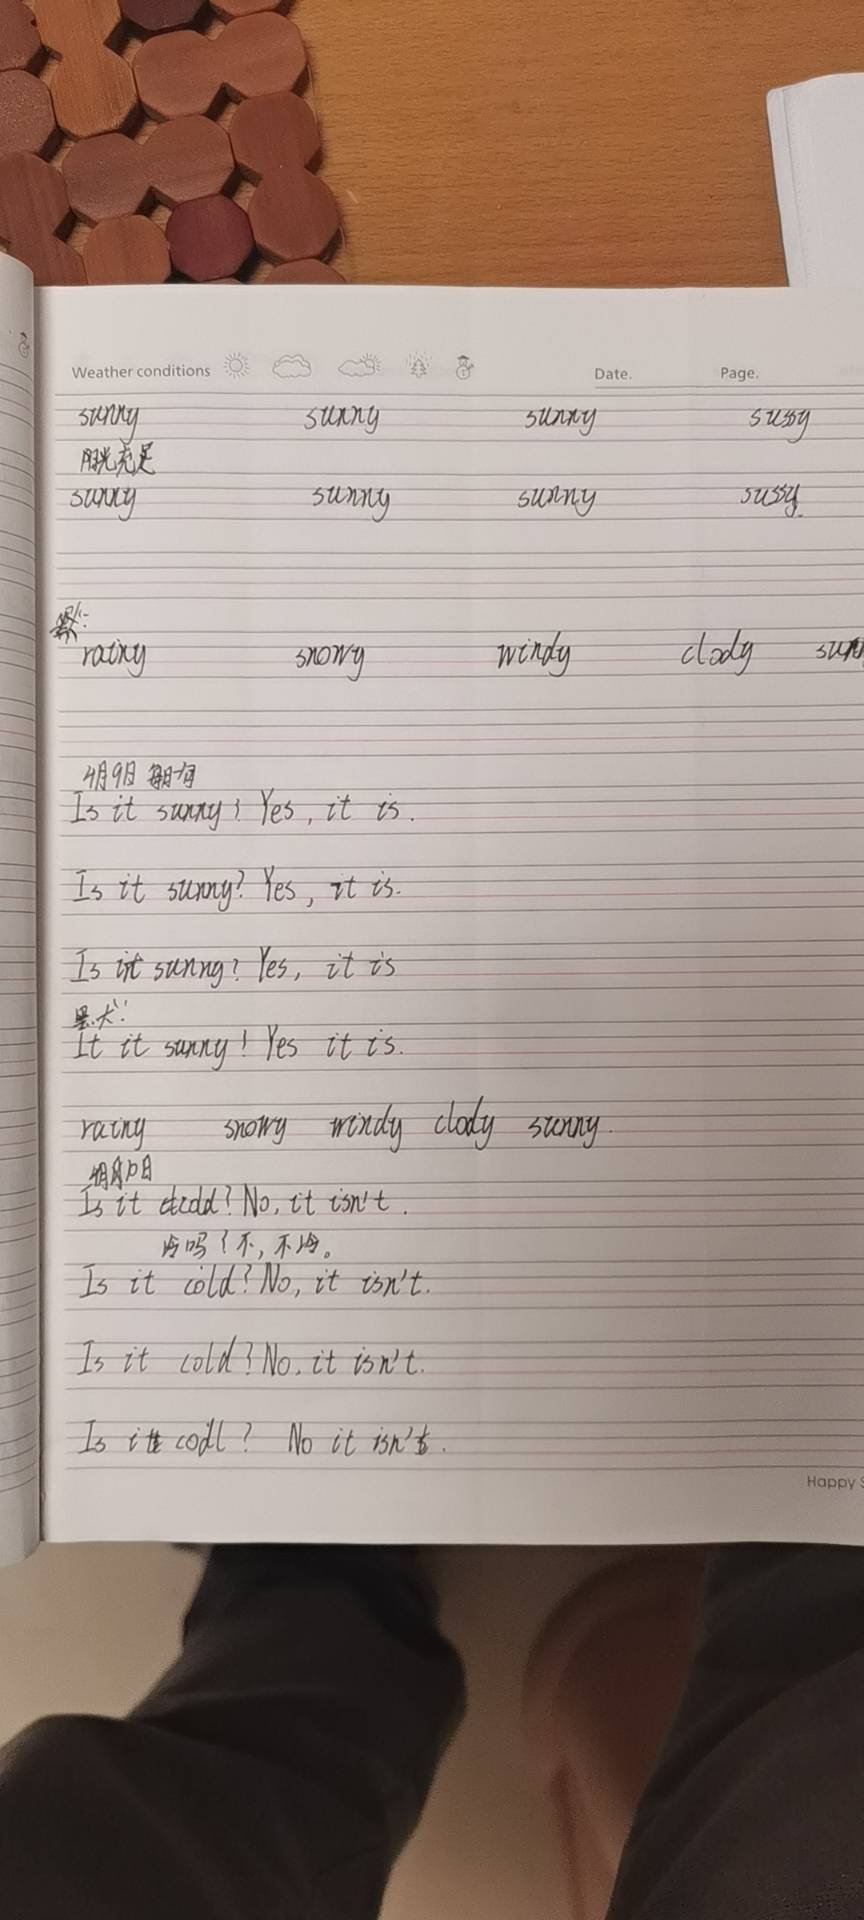 Weather conditions Date. Page.
sunny sunny sunny sussy
阳光充足
sunny sunny sunny sussy
默:
rainy snowy windy clody sunn
4月9日 每日一句
Is it sunny? Yes, it is.
Is it sunny? Yes, it is.
Is it sunny? Yes, it is
It it sunny! Yes it is.
rainy snowy windy clody sunny.
4月10日
Is it cold? No, it isn't.
冷吗?不,不冷。
Is it cold? No, it isn't.
Is it cold? No, it isn't.
Is it codl? No it isn't.
Happy